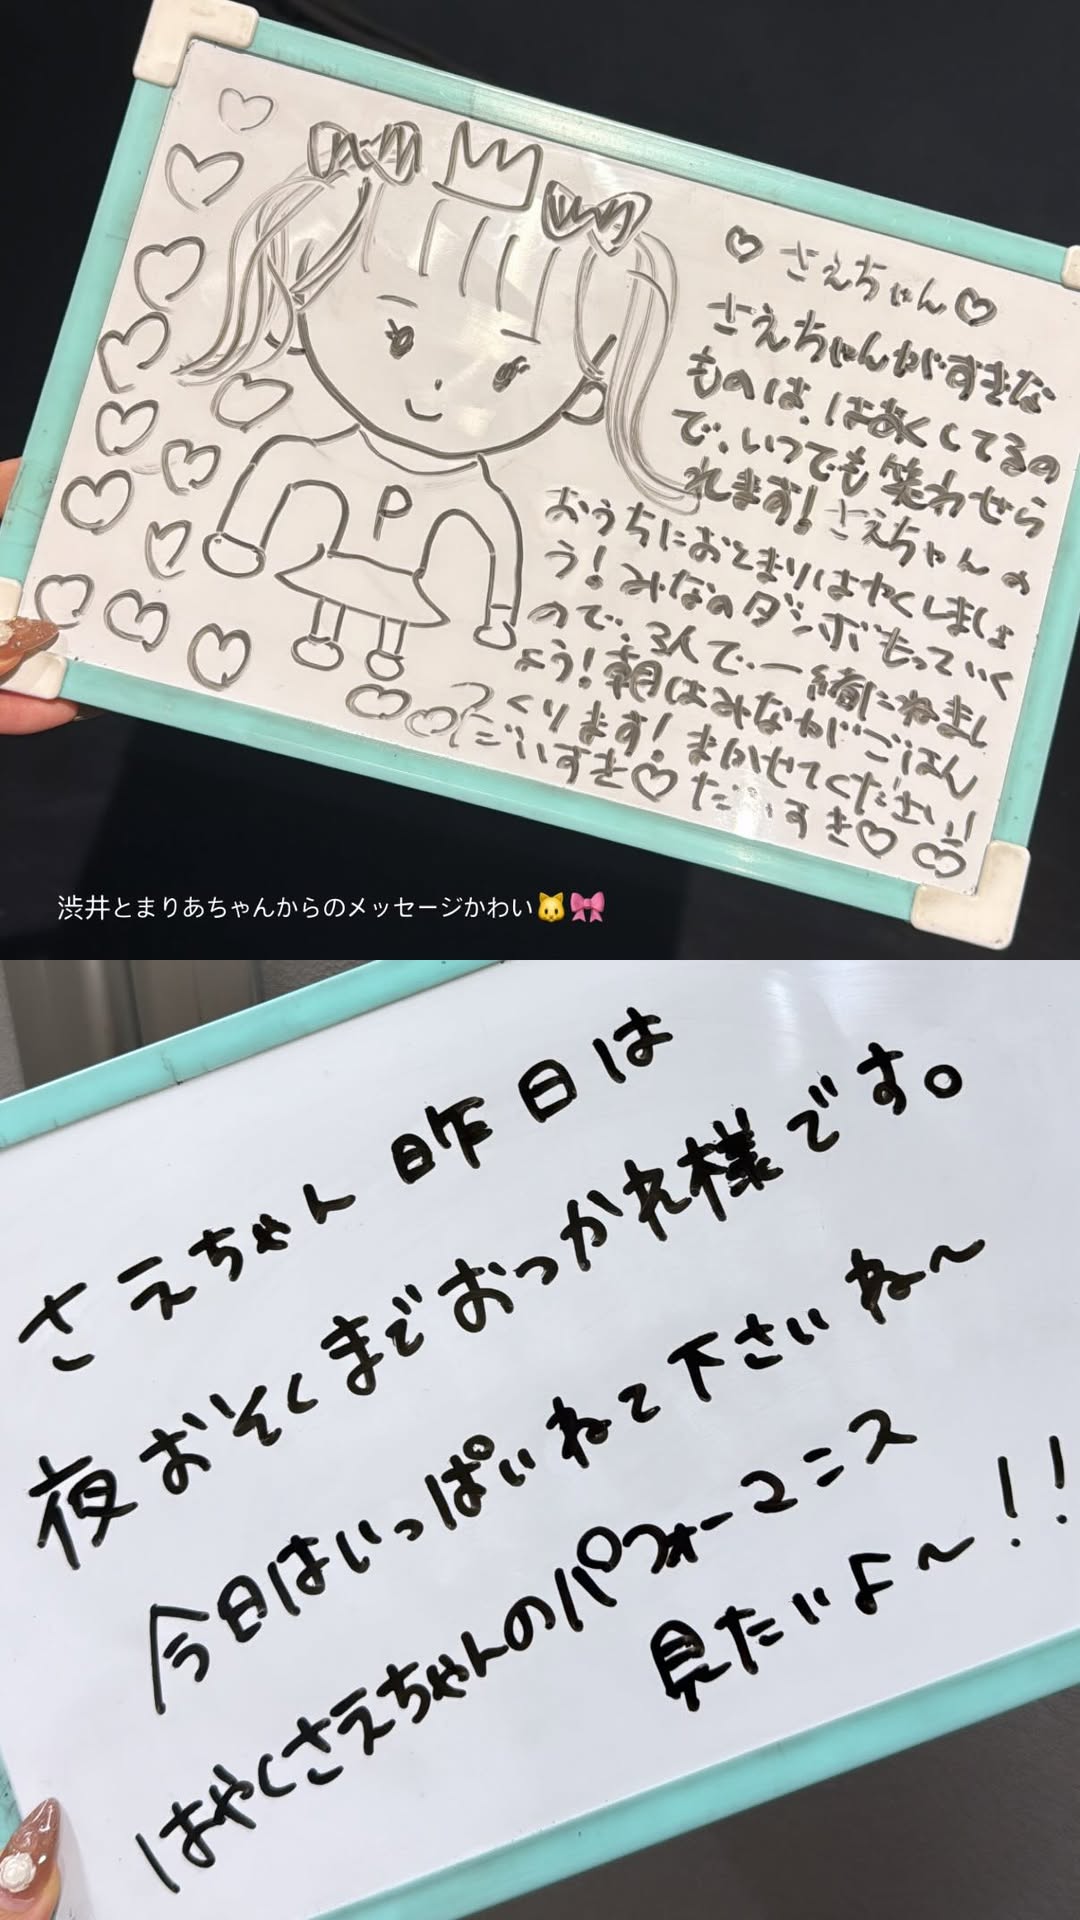 ♡さえちゃん♡
さえちゃんがすきな
ものは、はあくしてるの
で、いつでも笑わせら
れます！さえちゃんの
おうちにおとまりはやくしましょ
う！みなのダンボもっていく
ので、3人で一緒にねまし
ょう！朝はみながごはん
つくります！まかせてください！
だいすき♡だいすき♡
P
渋井とまりあちゃんからのメッセージかわい🐱🎀
さえちゃん昨日は
夜おそくまでおつかれ様です。
今日はいっぱいねて下さいね〜
はやくさえちゃんのパフォーマンス
見たいよ〜！！